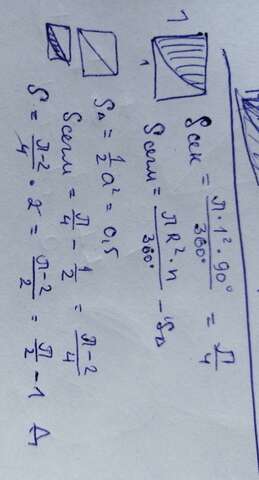 1
1
Sсек = π·1²·90° / 360° = π/4
Sсегм = πR²·n / 360° - S△
S△ = 1/2 a² = 0,5
Sсегм = π/4 - 1/2 = π-2/4
S = π-2/4 · 2 = π-2/2 = π/2 - 1